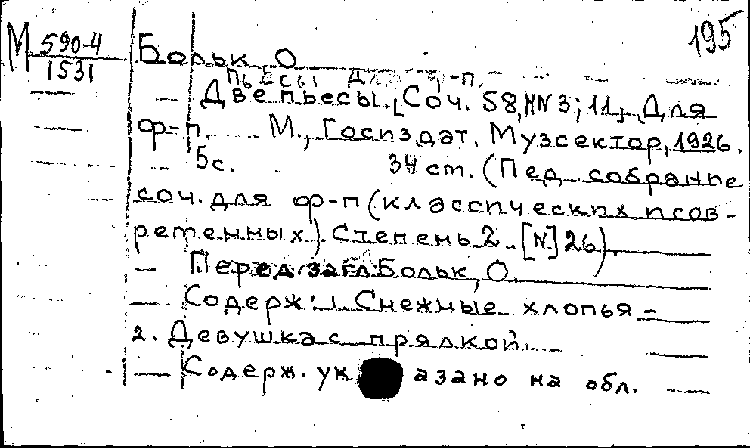 195
М 590-4
1531
Больк, О
Пьесы для ф-п.
Две пьесы. [Соч. 58, NN 3; 11]. Для
ф-п. М., Госиздат. Музсектор, 1926.
5с. 34 ст. (Пед. собрание
соч. для ф-п (классических и сов-
ременных) Степень 2. [N] 26).
Перед загл. Больк, О.
Содерж: 1. Снежные хлопья -
2. Девушка с прялкой.
Содерж. указано на обл.